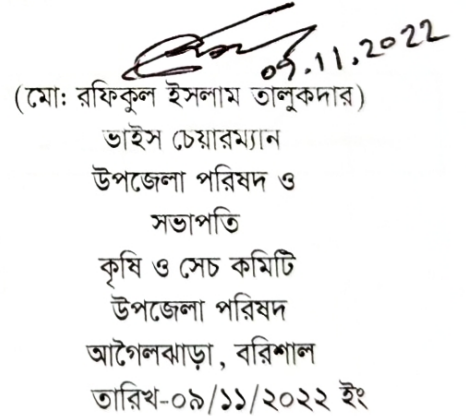 09.11.2022
(মো: রফিকুল ইসলাম তালুকদার)
ভাইস চেয়ারম্যান
উপজেলা পরিষদ ও
সভাপতি
কৃষি ও সেচ কমিটি
উপজেলা পরিষদ
আগৈলঝাড়া , বরিশাল
তারিখ-০৯/১১/২০২২ ইং